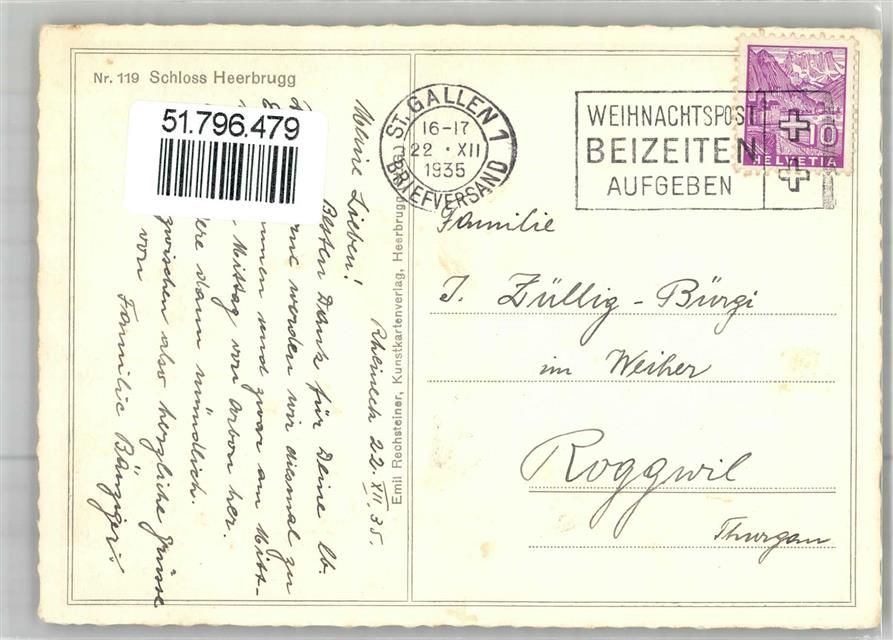 Nr. 119 Schloss Heerbrugg
51.796.479
Rheineck 22. XII. 35.
Meine Lieben!
Besten Dank für Deine lb.
werden wir diesmal zu
und zwar am Mitt-
Mittag von Arbon her.
dann mündlich.
zwischen also herzliche Grüsse
von
Familie Bänziger.
Emil Rechsteiner, Kunstkartenverlag, Heerbrugg
ST. GALLEN 1
16-17
22 · XII
1935
BRIEFVERSAND
WEIHNACHTSPOST
BEIZEITEN
AUFGEBEN
10
HELVETIA
Familie
J. Züllig - Bürgi
im Weiher
Roggwil
Thurgau